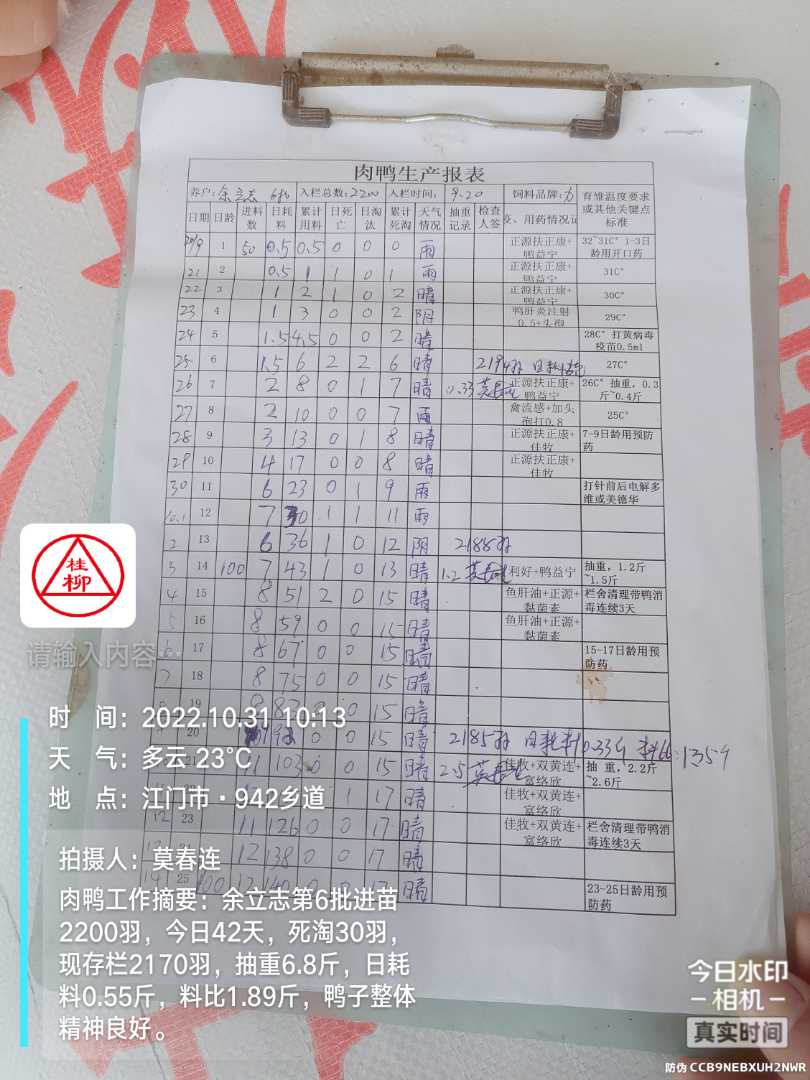 肉鸭生产报表
养户:余立志 6批 入栏总数:2200 入栏时间: 9.20 饲料品牌:力 育雏温度要求或其他关键点标准
日期 日龄 进料数 日耗料 累计用料 日死亡 日淘汰 累计死淘 天气情况 抽重记录 检查人签 疫、用药情况记
20/9 1 50 0.5 0.5 0 0 0 雨 正源扶正康+鸭益宁 32~31C° 1-3日龄用开口药
21 2 0.5 1 1 0 1 雨 正源扶正康+鸭益宁 31C°
22 3 1 2 1 0 2 晴 正源扶正康+鸭益宁 30C°
23 4 1 3 0 0 2 阴 鸭肝炎注射0.5+头孢 29C°
24 5 1.5 4.5 0 0 2 晴 28C° 打黄病毒疫苗0.5ml
25 6 1.5 6 2 2 6 晴 2194羽 27C°
26 7 2 8 0 1 7 晴 0.33 正源扶正康+鸭益宁 26C° 抽重，0.3斤~0.4斤
27 8 2 10 0 0 7 雨 禽流感+加头孢打0.8 25C°
28 9 3 13 0 1 8 晴 正源扶正康+佳牧 7-9日龄用预防药
29 10 4 17 0 0 8 晴 正源扶正康+佳牧
30 11 6 23 0 1 9 雨 打针前后电解多维或美德华
10.1 12 7 30 1 1 11 雨
2 13 6 36 1 0 12 阴 2188羽
3 14 100 7 43 1 0 13 晴 1.2 利好+鸭益宁 抽重，1.2斤~1.5斤
4 15 8 51 2 0 15 晴 鱼肝油+正源+黏菌素 栏舍清理带鸭消毒连续3天
5 16 8 59 0 0 15 晴 鱼肝油+正源+黏菌素
6 17 8 67 0 0 15 晴 15-17日龄用预防药
7 18 8 75 0 0 15 晴
19 8 0 0 15 晴
20 0 0 15 晴 2185羽 日耗料0.33斤 1.35斤
21 11 103 0 0 15 晴 2.5 佳牧+双黄连+富络欣 抽 重，2.2斤~2.6斤
1 17 晴 佳牧+双黄连+富络欣
12 23 11 126 0 0 17 晴 佳牧+双黄连+富络欣 栏舍清理带鸭消毒连续3天
12 138 0 0 17 晴
14 25 100 12 0 0 17 晴 23-25日龄用预防药
桂柳
请输入内容...
时 间：2022.10.31 10:13
天 气：多云 23°C
地 点：江门市·942乡道
拍摄人：莫春连
肉鸭工作摘要：余立志第6批进苗
2200羽，今日42天，死淘30羽，
现存栏2170羽，抽重6.8斤，日耗
料0.55斤，料比1.89斤，鸭子整体
精神良好。
今日水印
-相机-
真实时间
防伪 CCB9NEBXUH2NWR